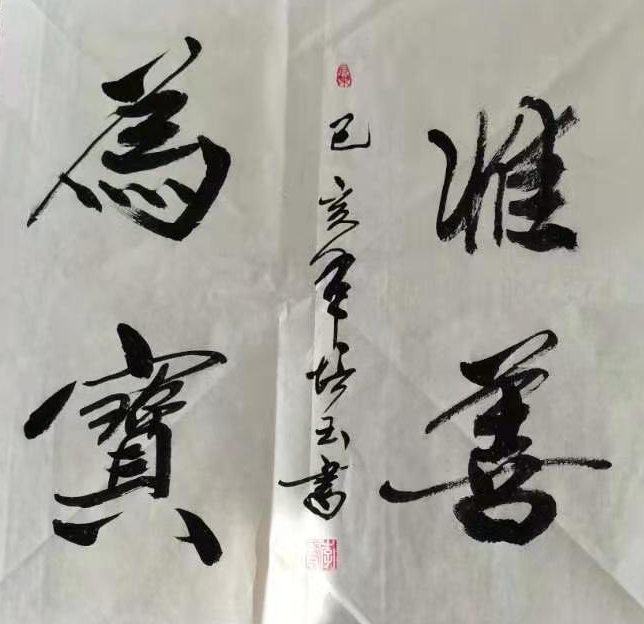 惟善
為寶
己亥年培玉書